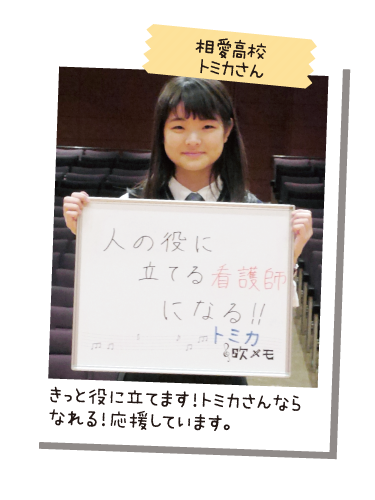 相愛高校
トミカさん
人の役に
立てる看護師
になる!!
トミカ
歌メモ
きっと役に立てます!トミカさんなら
なれる!応援しています。